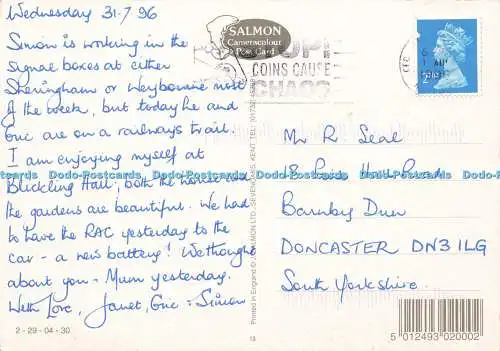 Wednesday 31.7.96
Simon is working in the
signal boxes at either
Sheringham or Weybourne most
of the week, but today he and
Eric are on a railways trail.
I am enjoying myself at
Blickling Hall, both the house and
the gardens are beautiful. We had
to have the RAC yesterday to the
car - a new battery! We thought
about you - Mum yesterday.
With Love, Janet, Eric - Simon
2 - 29 - 04 - 30
SALMON
Cameracolour
Post Card
COINS CAUSE
CHAOS
2ND
Mr R Seal
18 Hall Road
Barnby Dun
DONCASTER DN3 1LG
South Yorkshire
Printed in England © J SALMON LTD., SEVENOAKS, KENT. TEL:
13
5 012493 020002
Dodo-Postcards Dodo-Postcards Dodo-Postcards Dodo-Postcards